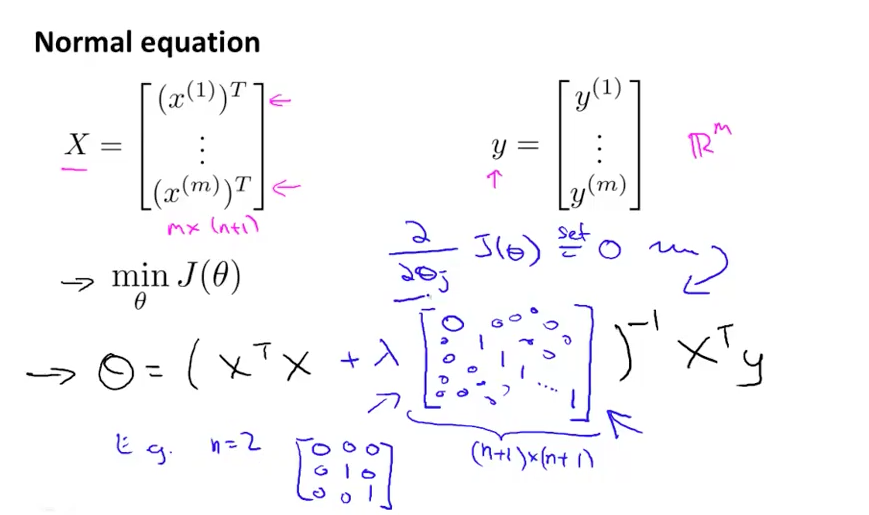 Normal equation
X = [ (x^(1))^T ⋮ (x^(m))^T ] ← ←
m×(n+1)
y = [ y^(1) ⋮ y^(m) ] ℝ^m
↑
∂/∂θ_j J(θ) set = 0
→ min_θ J(θ)
→ θ = ( X^T X + λ [ 0 1 1 1 ⋱ 1 ] )^-1 X^T y
(n+1)×(n+1)
E.g. n=2 [ 0 0 0
0 1 0
0 0 1 ]